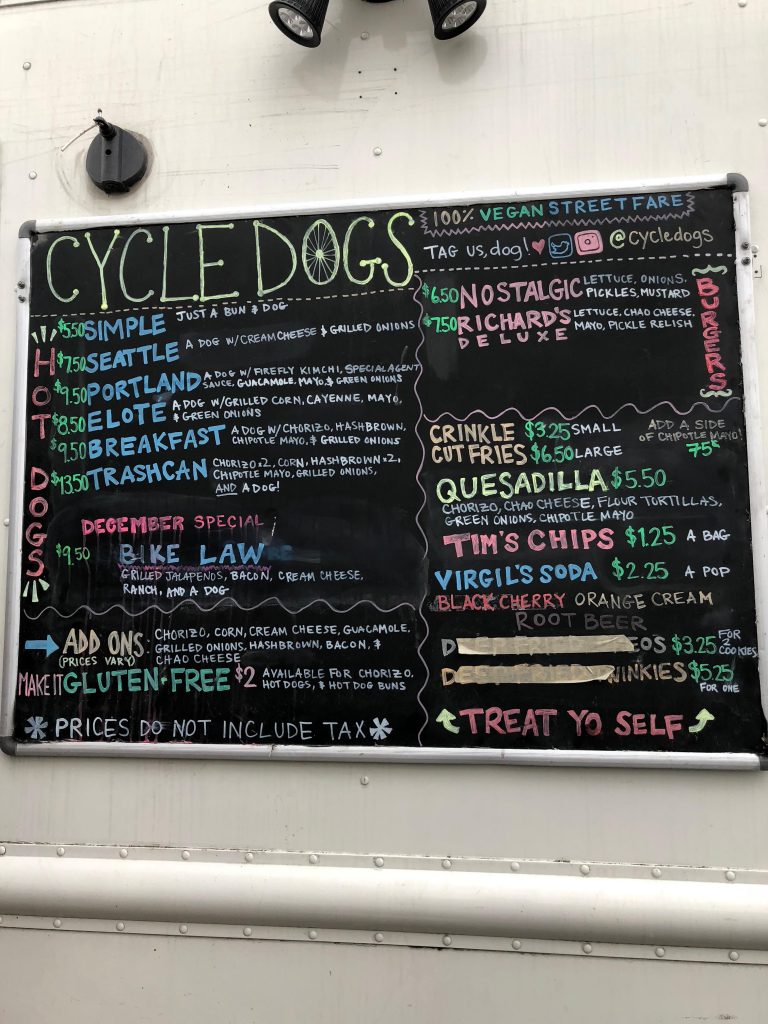 CYCLE DOGS
HOT DOGS
$5.50 SIMPLE JUST A BUN & DOG
$7.50 SEATTLE A DOG W/CREAM CHEESE & GRILLED ONIONS
$9.50 PORTLAND A DOG W/ FIREFLY KIMCHI, SPECIAL AGENT
SAUCE, GUACAMOLE, MAYO, & GREEN ONIONS
$8.50 ELOTE A DOG W/GRILLED CORN, CAYENNE, MAYO,
& GREEN ONIONS
$9.50 BREAKFAST A DOG W/ CHORIZO, HASHBROWN,
CHIPOTLE MAYO, & GRILLED ONIONS
$13.50 TRASHCAN CHORIZO x2, CORN, HASHBROWN x2,
CHIPOTLE MAYO, GRILLED ONIONS,
AND A DOG!
DECEMBER SPECIAL
$9.50 BIKE LAW
GRILLED JALAPENOS, BACON, CREAM CHEESE,
RANCH, AND A DOG
ADD ONS: CHORIZO, CORN, CREAM CHEESE, GUACAMOLE,
(PRICES VARY) GRILLED ONIONS, HASHBROWN, BACON, &
CHAO CHEESE
MAKE IT GLUTEN-FREE $2 AVAILABLE FOR CHORIZO,
HOT DOGS, & HOT DOG BUNS
* PRICES DO NOT INCLUDE TAX *
100% VEGAN STREET FARE
TAG US, dog! @cycledogs
BURGERS
$6.50 NOSTALGIC LETTUCE, ONIONS,
PICKLES, MUSTARD
$7.50 RICHARD'S LETTUCE, CHAO CHEESE,
DELUXE MAYO, PICKLE RELISH
CRINKLE $3.25 SMALL
CUT FRIES $6.50 LARGE
ADD A SIDE
OF CHIPOTLE MAYO!
75¢
QUESADILLA $5.50
CHORIZO, CHAO CHEESE, FLOUR TORTILLAS,
GREEN ONIONS, CHIPOTLE MAYO
TIM'S CHIPS $1.25 A BAG
VIRGIL'S SODA $2.25 A POP
BLACK CHERRY ORANGE CREAM
ROOT BEER
D EOS $3.25 FOR 2 COOKIES
WINKIES $5.25
FOR ONE
TREAT YO SELF